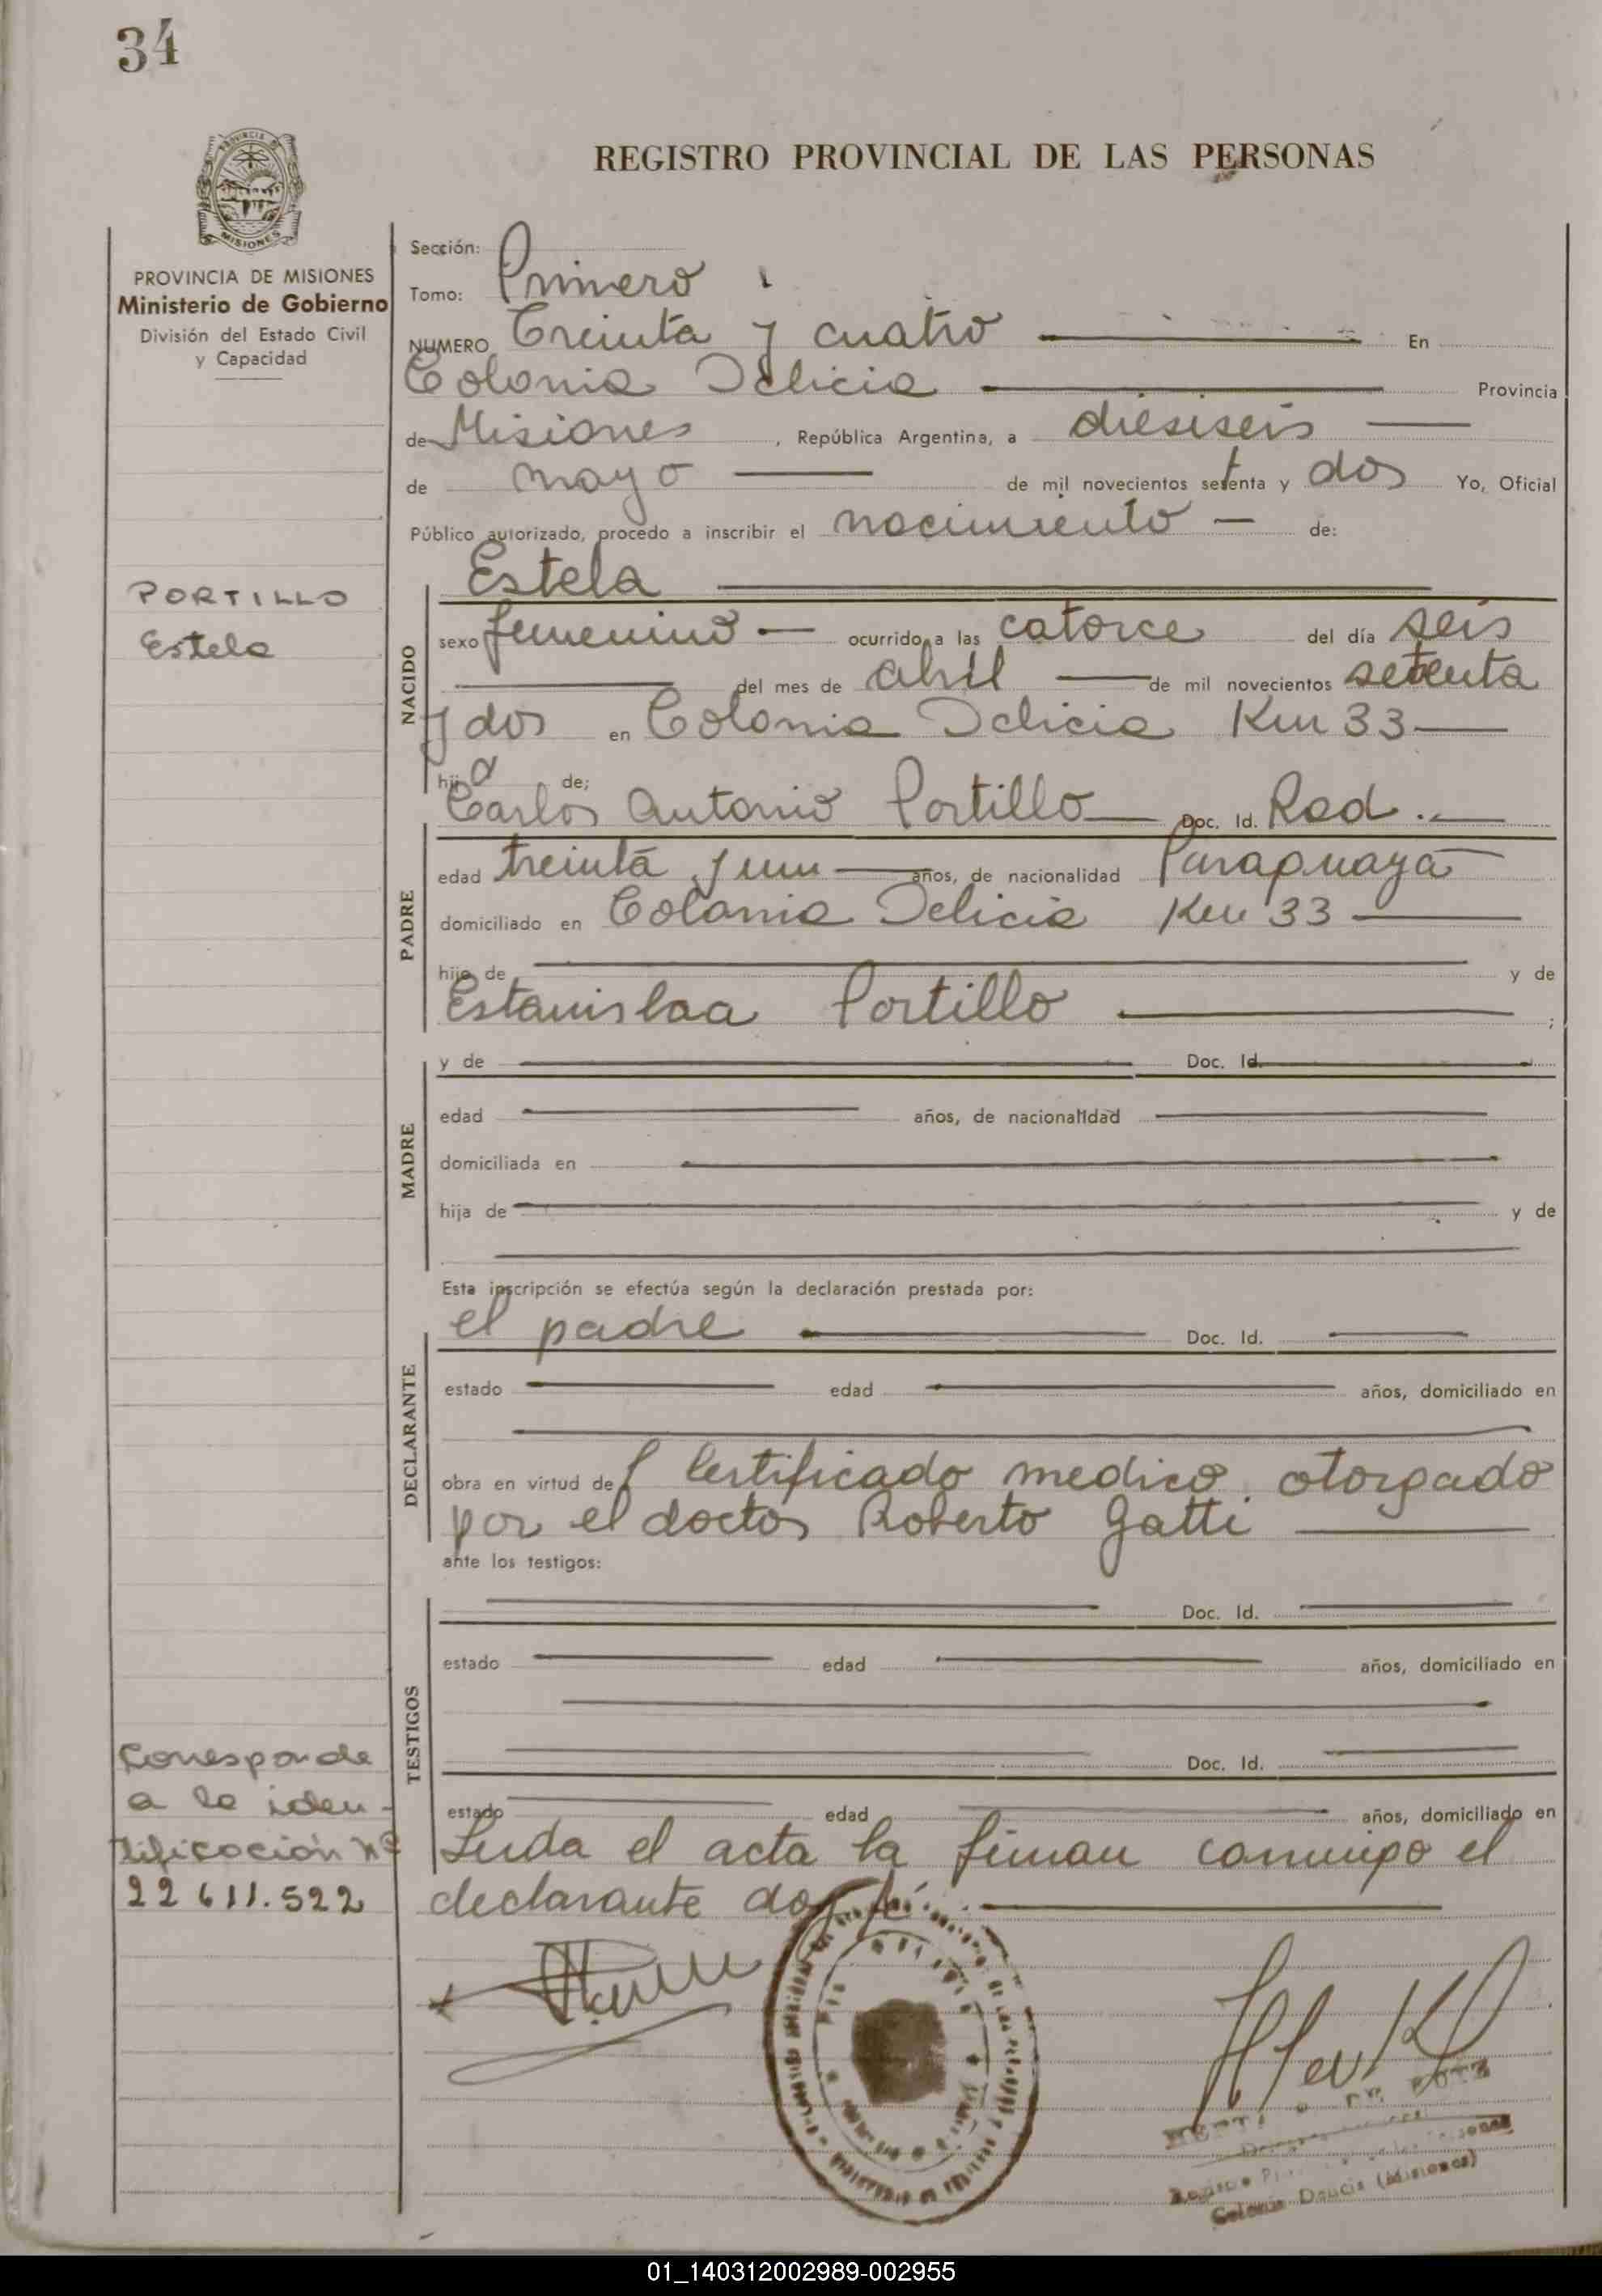 34
REGISTRO PROVINCIAL DE LAS PERSONAS
PROVINCIA DE MISIONES
MISIONES
PROVINCIA DE MISIONES
Ministerio de Gobierno
División del Estado Civil
y Capacidad
PORTILLO
Estela
Corresponde
a la iden-
tificación Nº
22 611.522
Sección:
Tomo: Primero
NUMERO Treinta y cuatro En
Colonia Delicia Provincia
de Misiones, República Argentina, a diesiseis
de mayo de mil novecientos setenta y dos Yo, Oficial
Público autorizado, procedo a inscribir el nacimiento de:
Estela
NACIDO
sexo femenino ocurrido a las catorce del día seis
del mes de abril de mil novecientos setenta
y dos en Colonia Delicia Km 33
hija de;
Carlos Antonio Portillo Doc. Id. Rad.
PADRE
edad treinta y un años, de nacionalidad Paraguaya
domiciliado en Colonia Delicia Km 33
hijo de y de
Estanislaa Portillo ;
MADRE
y de Doc. Id.
edad años, de nacionalidad
domiciliada en
hija de y de
Esta inscripción se efectúa según la declaración prestada por:
el padre Doc. Id.
DECLARANTE
estado edad años, domiciliado en
obra en virtud del Certificado medico otorgado
por el doctor Roberto Gatti
ante los testigos:
TESTIGOS
Doc. Id.
estado edad años, domiciliado en
Doc. Id.
estado edad años, domiciliado en
Leida el acta la firman conmigo el
declarante doy fé.
Colonia Delicia (Misiones)
01_140312002989-002955